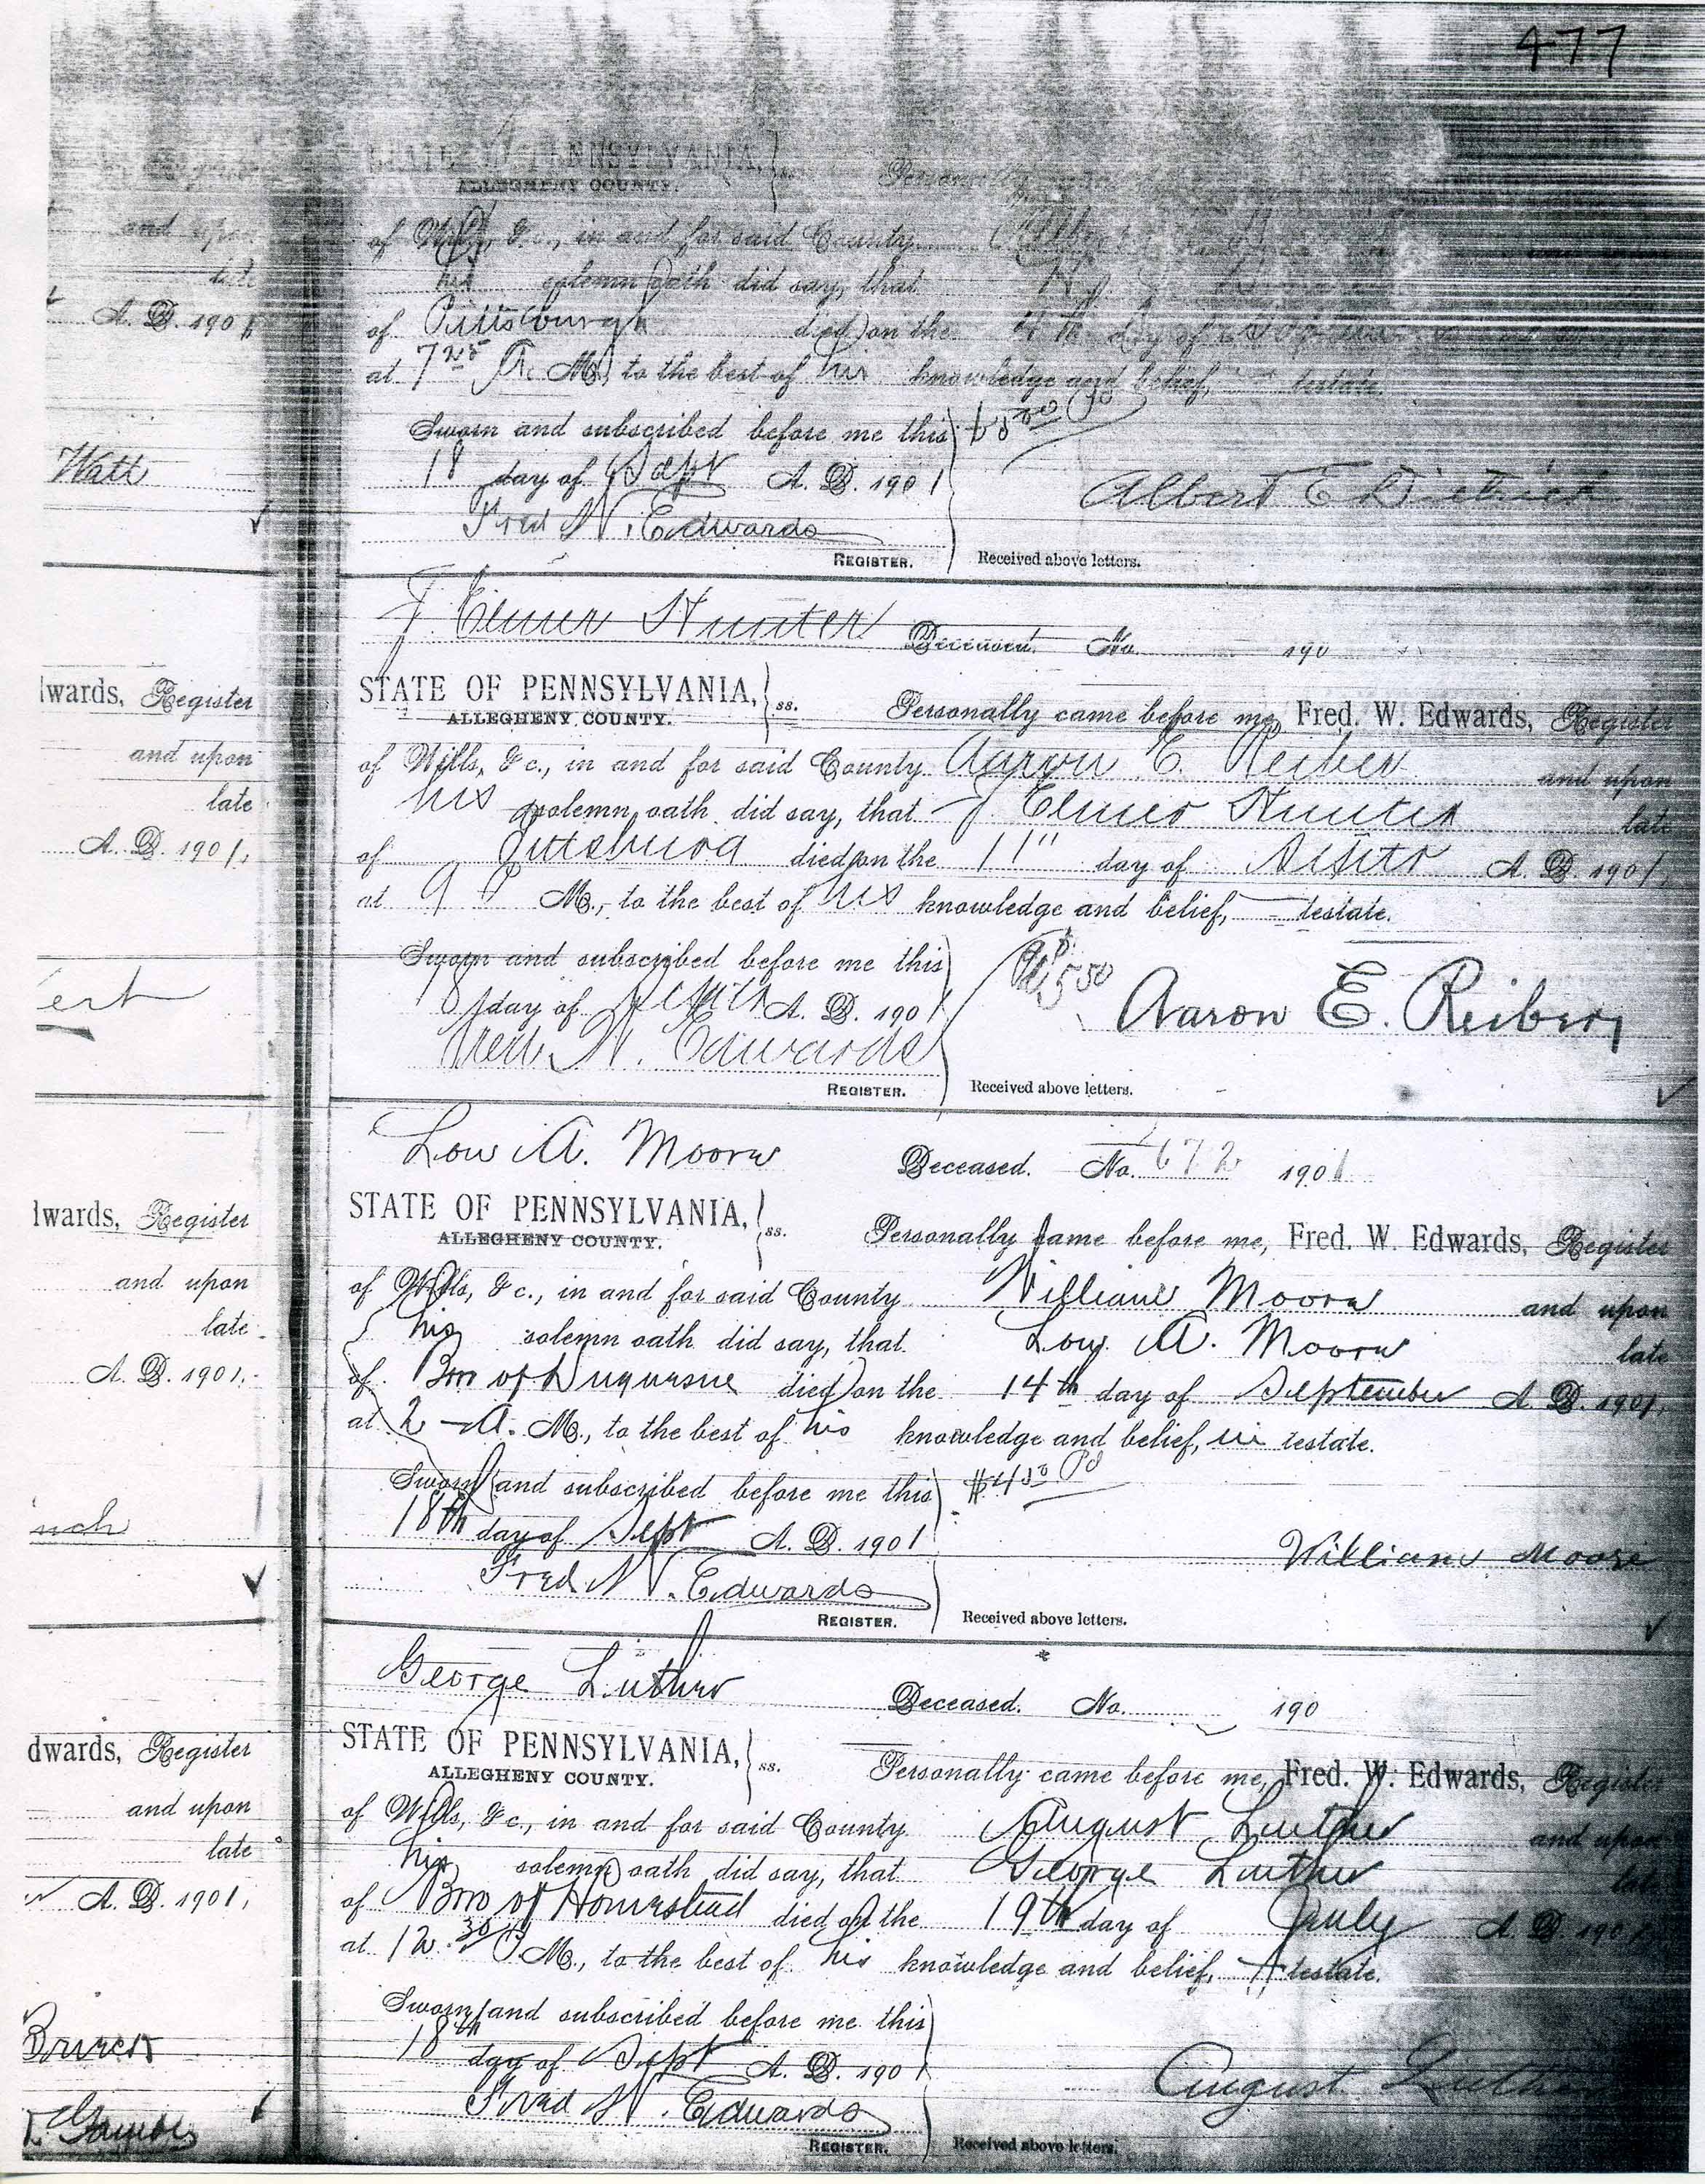 477
STATE OF PENNSYLVANIA, } ss. Personally
ALLEGHENY COUNTY.
of Wills, &c., in and for said County
his solemn oath did say, that
of Pittsburgh died on the day of
at 7 25 A. M., to the best of his knowledge and belief, testate.
Sworn and subscribed before me this
18 day of Sept A. D. 1901
Albert E Dietrich
Fred W. Edwards
REGISTER. Received above letters.
and upon
late
A. D. 1901
Watt
J. Elmer Hunter Deceased. No. 190
STATE OF PENNSYLVANIA, } ss. Personally came before me, Fred. W. Edwards, Register
ALLEGHENY COUNTY.
of Wills, &c., in and for said County Aaron E. Reiber and upon
his solemn oath did say, that J. Elmer Hunter late
of Pittsburg died on the 11" day of A. D. 1901,
at 9 P M., to the best of his knowledge and belief, – testate.
Sworn and subscribed before me this
18 day of A. D. 1901
Aaron E. Reiber
Fred W. Edwards
REGISTER. Received above letters.
dwards, Register
and upon
late
A. D. 1901,
ert
Low A. Moore Deceased. No. 672 1901
STATE OF PENNSYLVANIA, } ss. Personally came before me, Fred. W. Edwards, Register
ALLEGHENY COUNTY.
of Wills, &c., in and for said County William Moore and upon
his solemn oath did say, that Low A. Moore late
of Bro of Duquesne died on the 14th day of September A. D. 1901,
at 2 – A. M., to the best of his knowledge and belief, in testate.
Sworn and subscribed before me this $4 50 Pd
18th day of Sept A. D. 1901
William Moore
Fred W. Edwards
REGISTER. Received above letters.
dwards, Register
and upon
late
A. D. 1901,
nch
George Luther Deceased. No. 190
STATE OF PENNSYLVANIA, } ss. Personally came before me, Fred. W. Edwards, Register
ALLEGHENY COUNTY.
of Wills, &c., in and for said County August Luther and upon
his solemn oath did say, that George Luther late
of Bro of Homestead died on the 19th day of July A. D. 1901,
at 12.30 P M., to the best of his knowledge and belief, testate.
Sworn and subscribed before me this
18th day of Sept A. D. 190
August Luther
Fred W. Edwards
REGISTER. Received above letters.
dwards, Register
and upon
late
A. D. 1901,